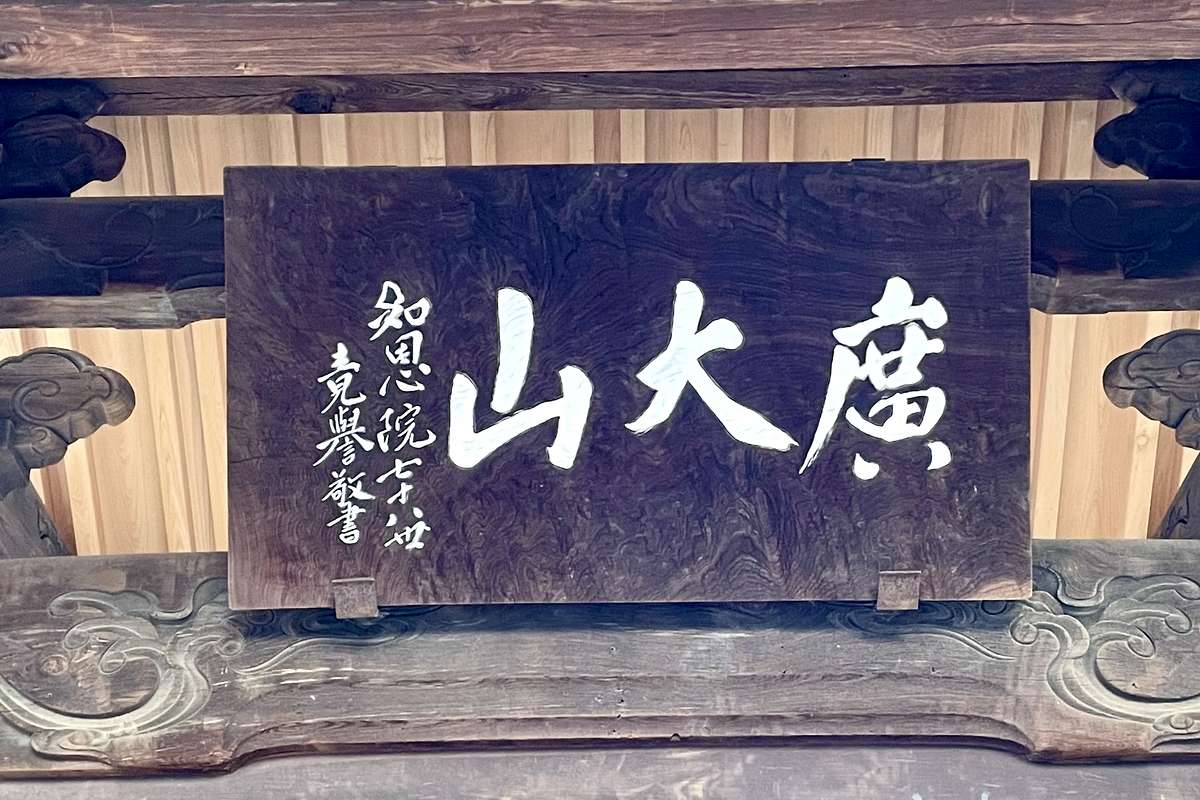 廣大山
知恩院七十八世
竟譽敬書